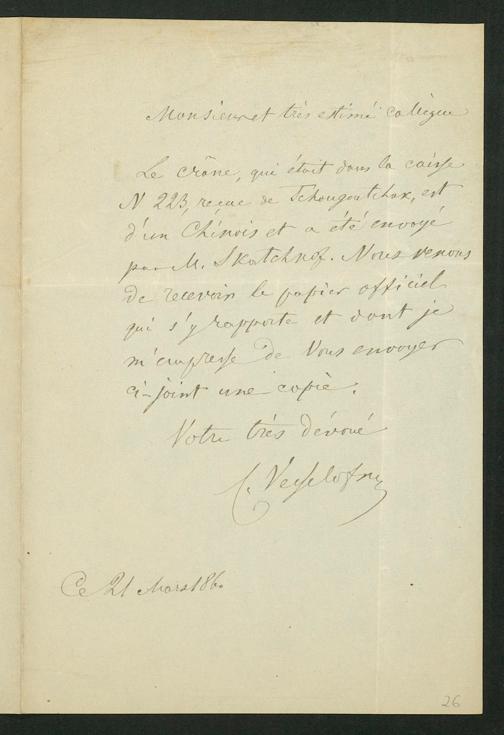 Monsieur et très estimé collègue
Le crâne, qui était dans la caisse
N 223, reçue de Tchougoutchak, est
d'un Chinois et a été envoyé
par M. Skatchkof. Nous venons
de recevoir le papier officiel
qui s'y rapporte et dont je
m'empresse de Vous envoyer
ci-joint une copie.
Votre très dévoué
C. Vesselofsky
Ce 21 Mars 1860
26